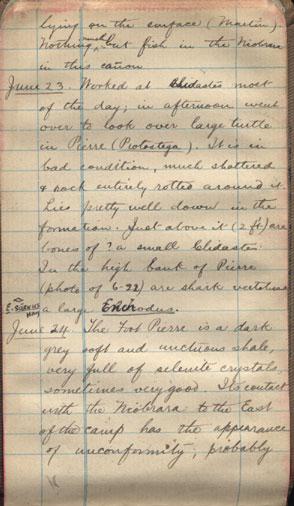 lying on the surface (Martin).
Nothing much but fish in the Niobrara
in this cañon
June 23. Worked at Clidastes most
of the day; in afternoon went
over to look over large turtle
in Pierre (Protostega). It is in
bad condition, much shattered
& rock entirely rotted around it.
Lies pretty well down in the
formation. Just above it (2 ft) are
bones of ? a small Clidastes.
In the high bank of Pierre
(photo of 6-22) are shark vertebrae
a large Enchodus.
June 24. The Foot Pierre is a dark
grey soft and unctuous shale,
very full of selenite crystals,
sometimes very good. Its contact
with the Niobrara to the East
of the camp has the appearance
of unconformity, probably